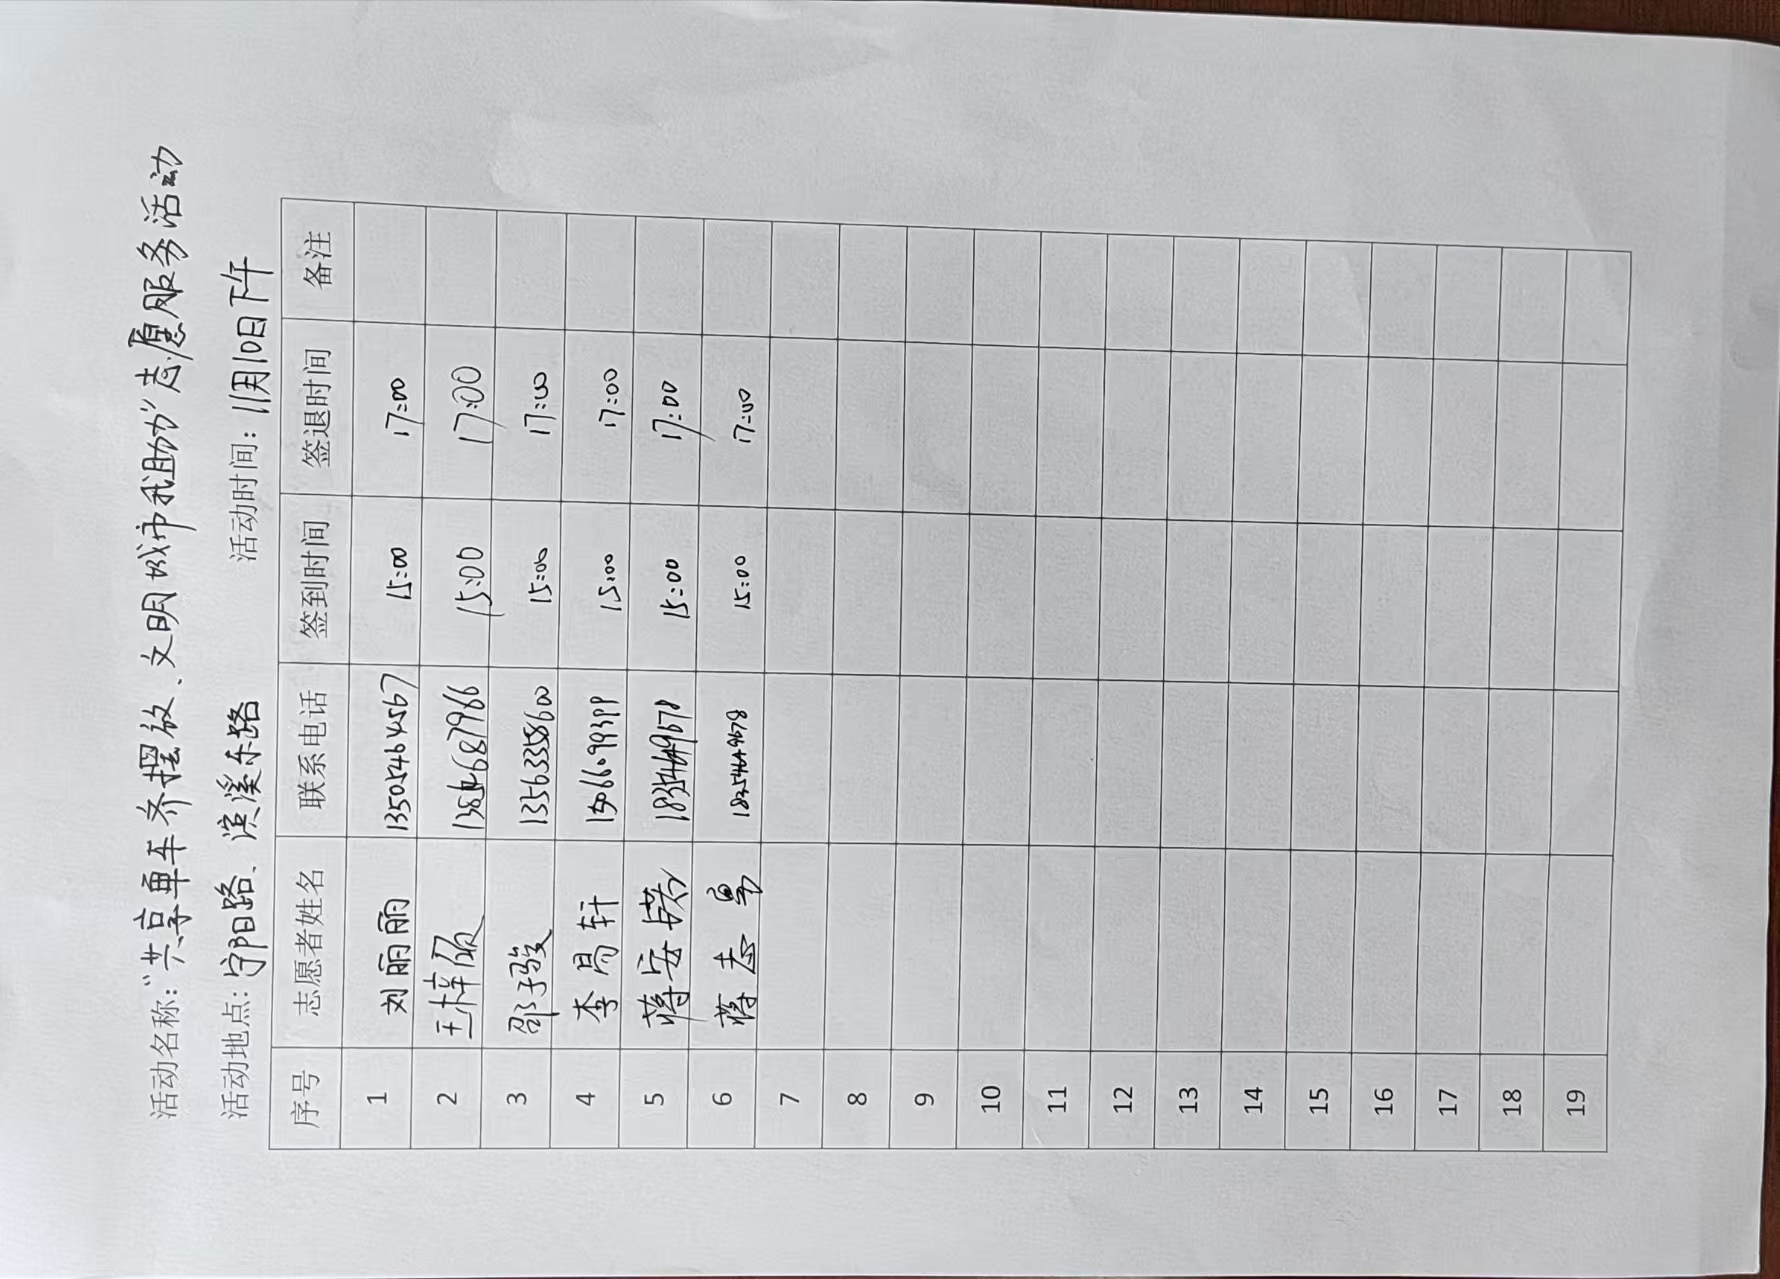 活动名称：“共享单车齐摆放、文明城市我助力”志愿服务活动
活动地点：宁阳路、滨溪东路 活动时间：11月10日下午
序号 志愿者姓名 联系电话 签到时间 签退时间 备注
1 刘丽丽 13505464567 15:00 17:00
2 王梓 15:00 17:00
3 邵子骏 13563358600 15:00 17:00
4 李易轩 15066099399 15:00 17:00
5 蒋安 18354649678 15:00 17:00
6 蒋志勇 15:00 17:00
7
8
9
10
11
12
13
14
15
16
17
18
19